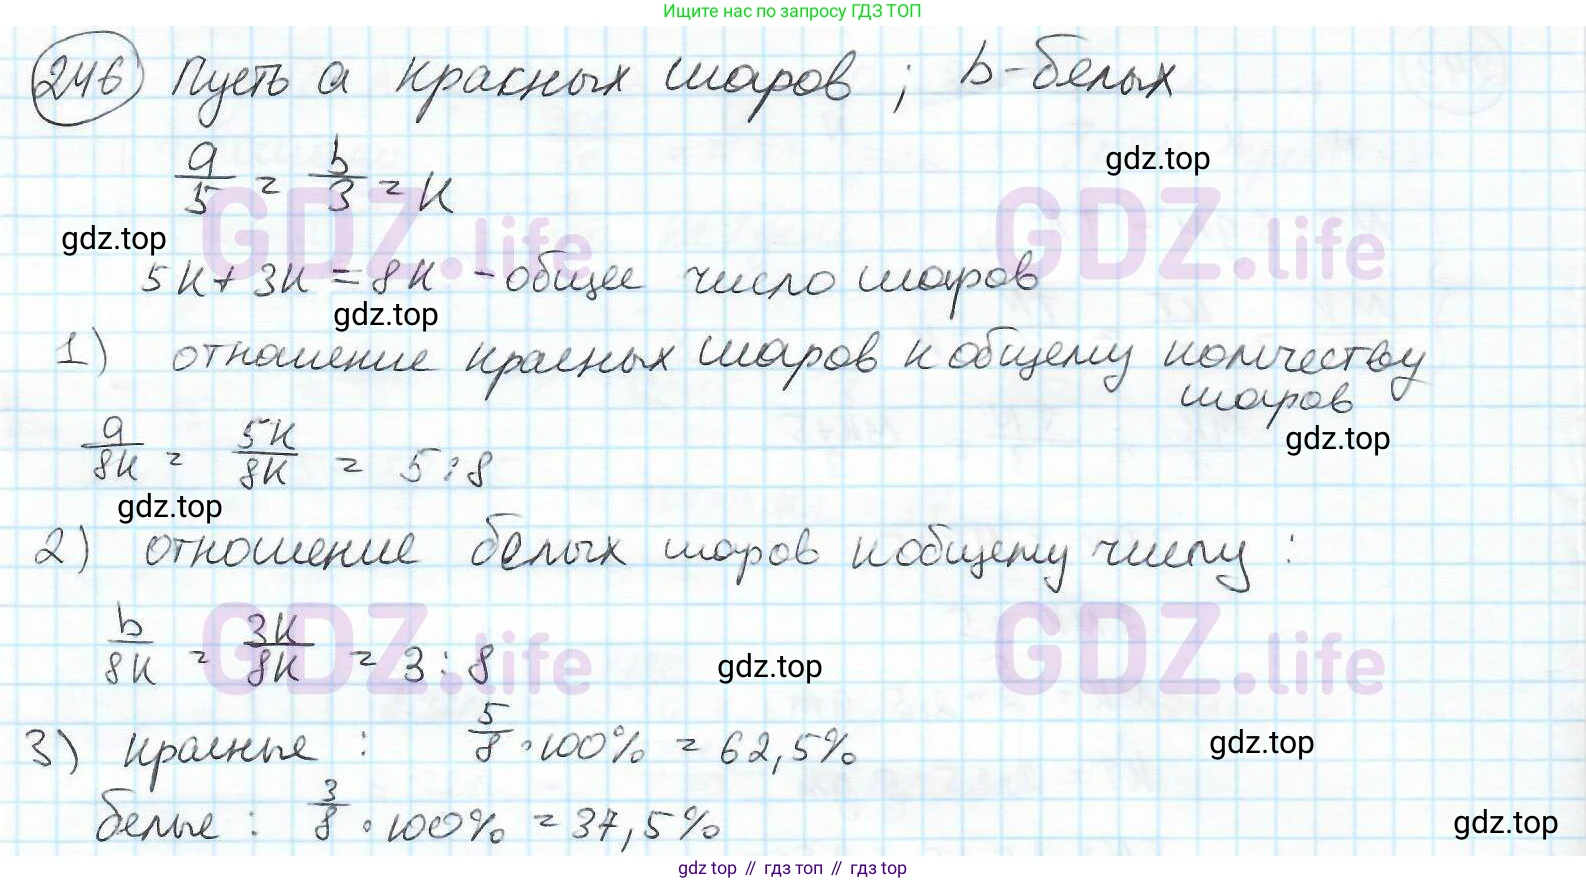 Ищите нас по запросу ГДЗ ТОП
246 Пусть a красных шаров ; b - белых
gdz.top
a/5 = b/3 = к
GDZ.life GDZ.life
gdz.top
5к + 3к = 8к - общее число шаров
gdz.top
1) отношение красных шаров к общему количеству
шаров
gdz.top
a/8к = 5к/8к = 5:8
gdz.top
2) отношение белых шаров к общему числу :
GDZ.life GDZ.life
b/8к = 3к/8к = 3:8
gdz.top
3) красные : 5/8 · 100% = 62,5%
gdz.top
белые : 3/8 · 100% = 37,5%
gdz.top
gdz top // гдз топ // гдз top